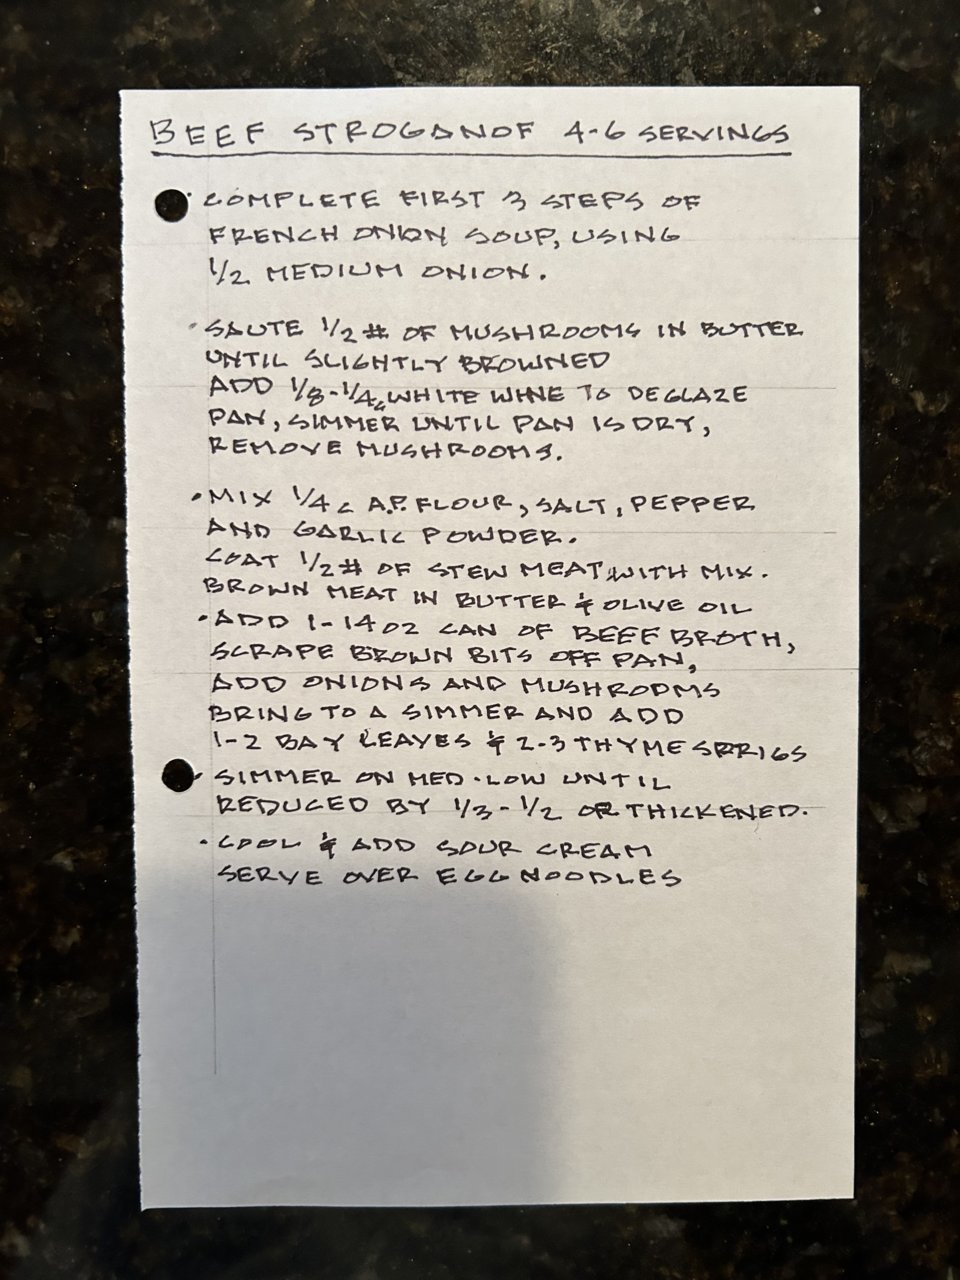 BEEF STROGANOF 4-6 SERVINGS
• COMPLETE FIRST 3 STEPS OF
FRENCH ONION SOUP, USING
1/2 MEDIUM ONION.
• SAUTE 1/2 # OF MUSHROOMS IN BUTTER
UNTIL SLIGHTLY BROWNED
ADD 1/8-1/4 c WHITE WINE TO DEGLAZE
PAN, SIMMER UNTIL PAN IS DRY,
REMOVE MUSHROOMS.
• MIX 1/4 c A.P. FLOUR, SALT, PEPPER
AND GARLIC POWDER.
COAT 1/2 # OF STEW MEAT WITH MIX.
BROWN MEAT IN BUTTER & OLIVE OIL
• ADD 1-14 OZ CAN OF BEEF BROTH,
SCRAPE BROWN BITS OFF PAN,
ADD ONIONS AND MUSHROOMS
BRING TO A SIMMER AND ADD
1-2 BAY LEAVES & 2-3 THYME SPRIGS
• SIMMER ON MED-LOW UNTIL
REDUCED BY 1/3-1/2 OR THICKENED.
• COOL & ADD SOUR CREAM
SERVE OVER EGG NOODLES